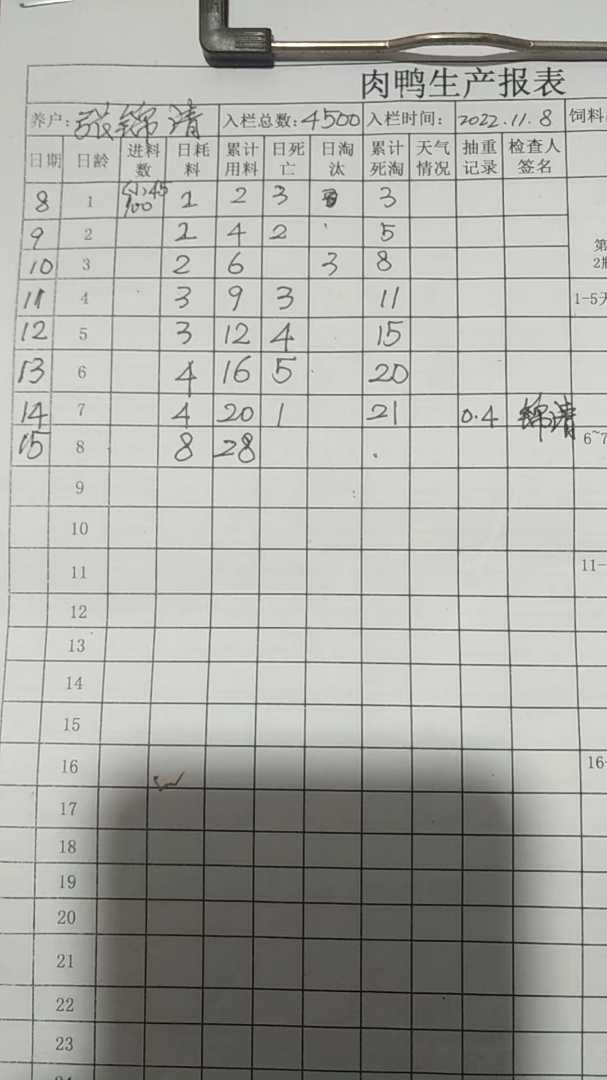 肉鸭生产报表
养户: 张锦清 入栏总数: 4500 入栏时间: 2022.11.8 饲料
日期 日龄 进料数 日耗料 累计用料 日死亡 日淘汰 累计死淘 天气情况 抽重记录 检查人签名
8 1 (小)45 100 1 2 3 3
9 2 2 4 2 5 第
10 3 2 6 3 8 2瓶
11 4 3 9 3 11 1-5天
12 5 3 12 4 15
13 6 4 16 5 20
14 7 4 20 1 21 0.4 锦清
15 8 8 28 6~7
9
10
11 11-
12
13
14
15
16 16-
17
18
19
20
21
22
23